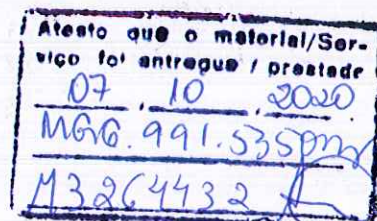 Atesto que o material/Ser-
viço foi entregue / prestado
07 . 10 . 2020
MG6.991.535
M3264432